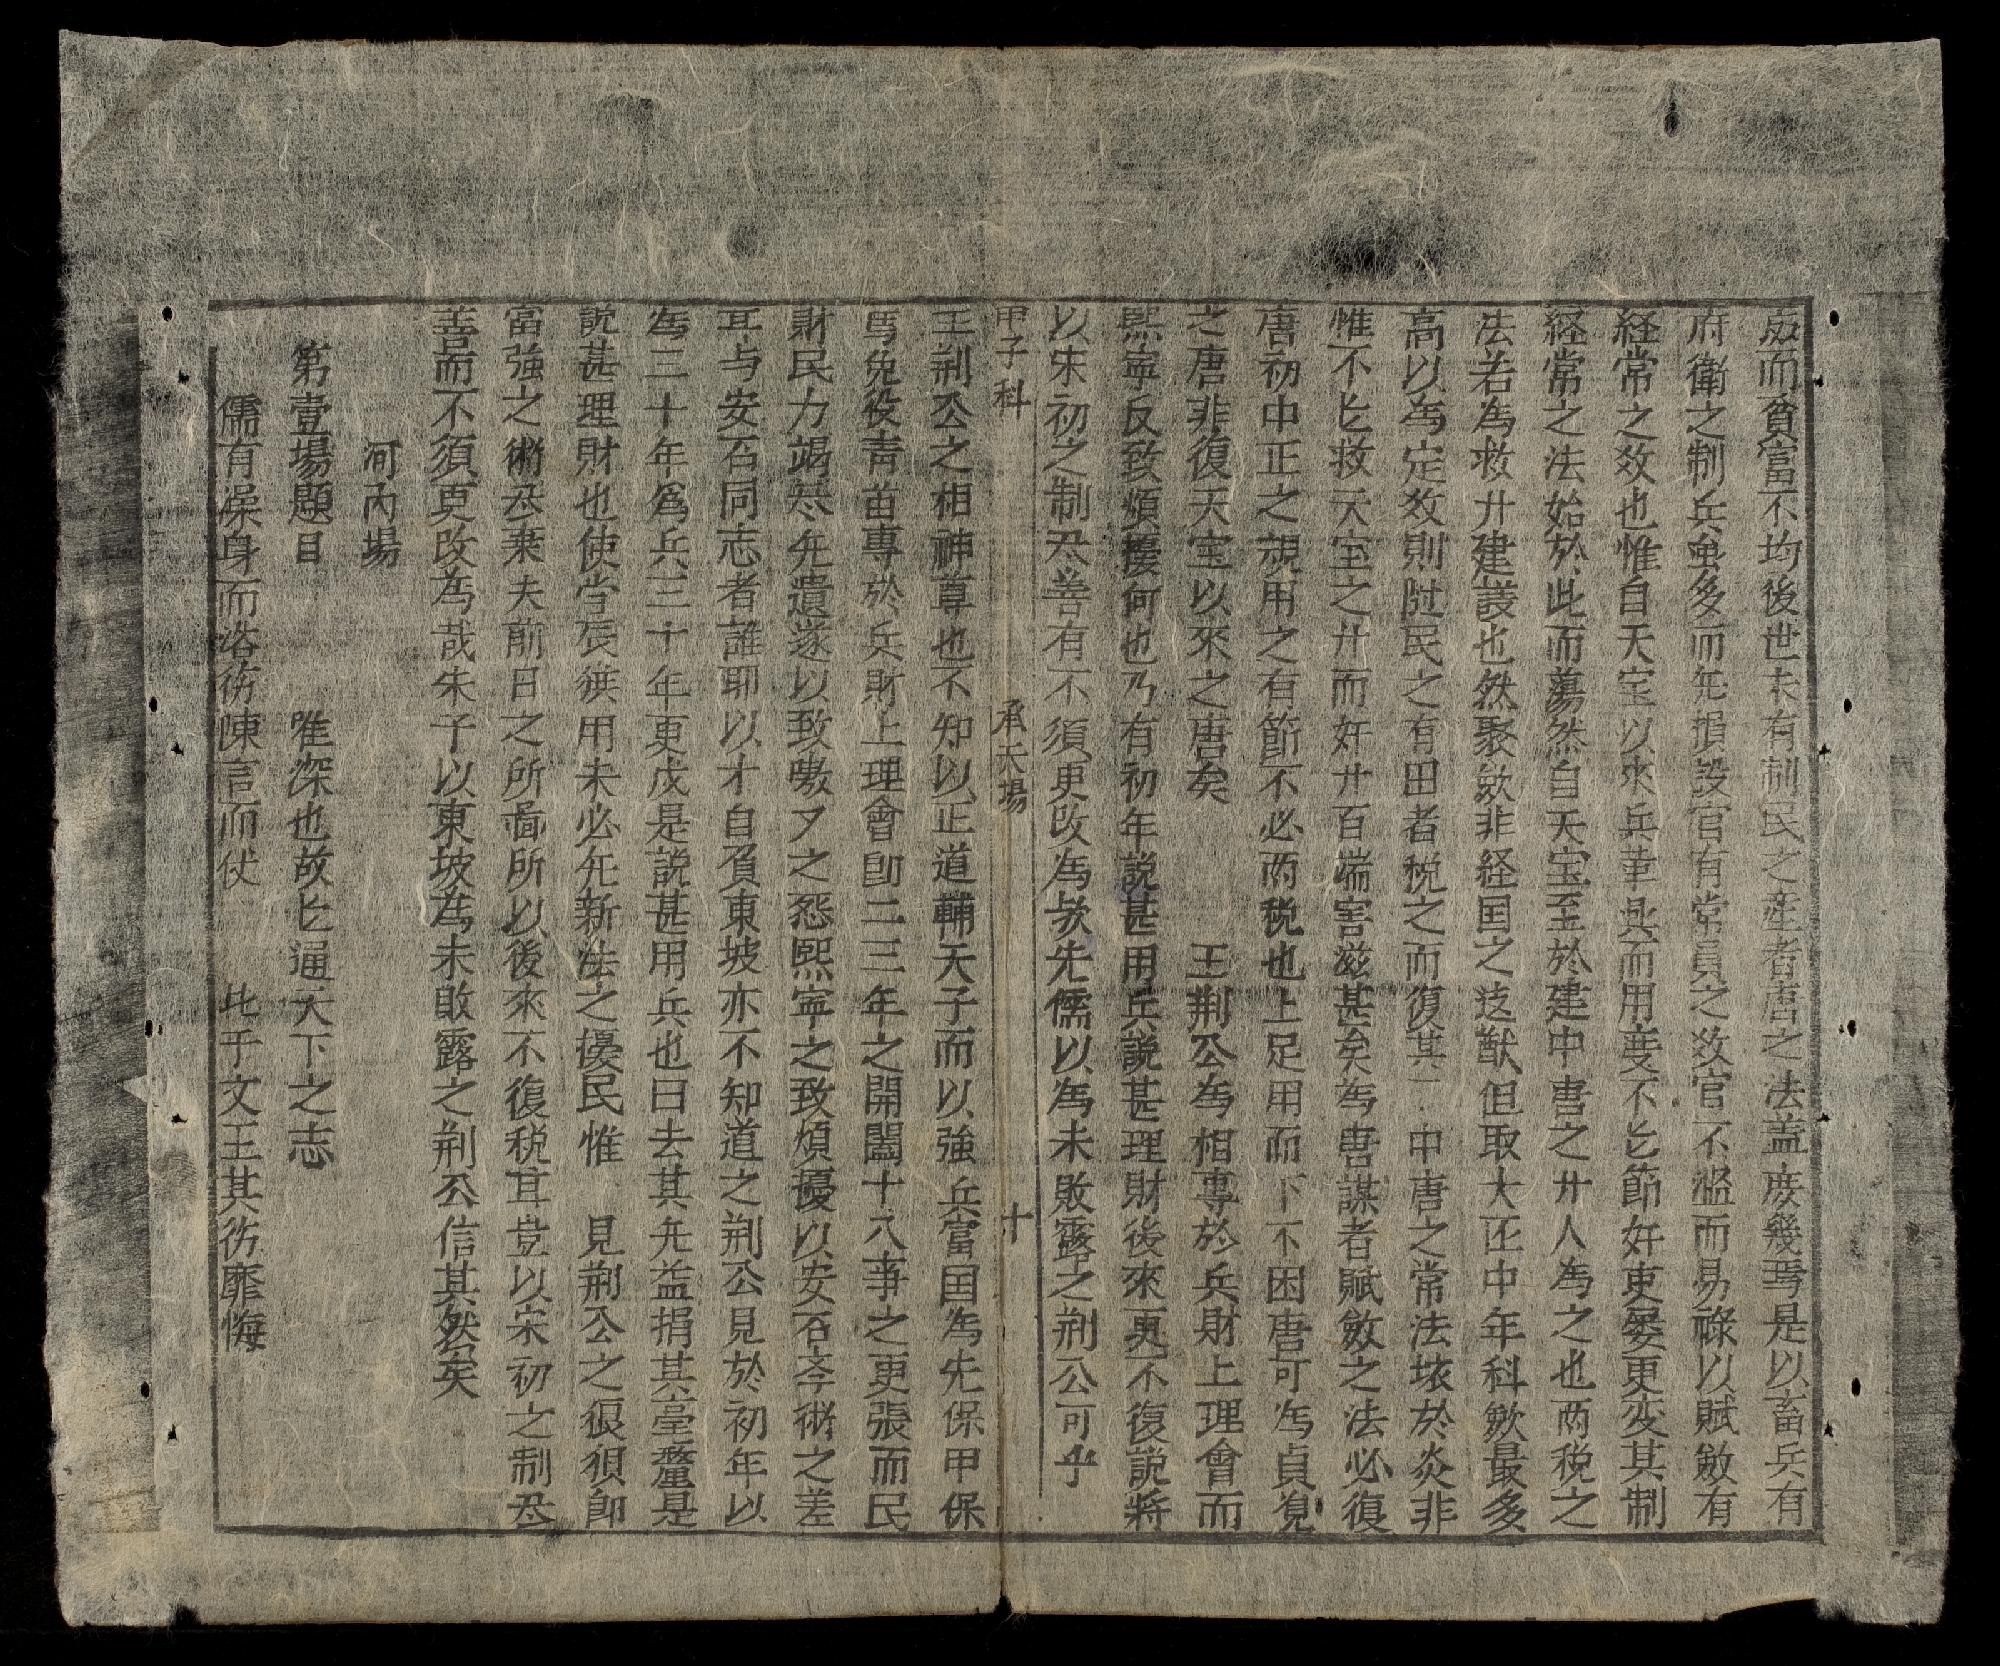 廃而貧富不均後世未有制民之産者唐之法盖庶幾焉是以畜兵有
府衛之制兵虽多而无損設官有常員之效官不濫而易祿以賦斂有
経常之效也惟自天宝以來兵革興而用度不𠃔節奸吏屡更变其制
経常之法始於此而蕩然自天宝至於建中唐之廾人為之也両税之
法若為救廾建議也然聚斂非経国之迯猷但取大历中年科斂最多
高以為定效則隉民之有田者税之而復其一中唐之常法垓於炎非
惟不𠃔救天宝之廾而奸廾百端害滋甚矣為唐謀者賦斂之法必復
唐初中正之規用之有節不必両税也上足用而下不困唐可為貞观
之唐非復天宝以來之唐矣　　王荆公為相專於兵財上理會而
熙寧反致煩擾何也乃有初年說甚用兵說甚理財後來更不復説將
以宋初之制尽善有不須更改為㢤先儒以為未敗露之荆公可乎
甲子科　承天場　十
王荆公之相神尊也不知以正道輔天子而以強兵富国為先保甲保
馬免役青苗專於兵財上理會即二三年之開闔十八事之更張而民
財民力竭尽无遺遂以致嗷々之怨熙寧之致煩擾以安石斈術之差
耳与安石同志者誰耶以才自負東坡亦不知道之荆公見於初年以
為三十年為兵三十年更戍是説甚用兵也曰去其无益捐其毫釐是
說甚理財也使當辰供用未必无新法之擾民惟　見荆公之狠狽即
富強之術丕棄夫前日之所畐所以後來不復税耳豈以宋初之制尽
善而不須更改為哉朱子以東坡為未敢露之荆公信其然矣
河内場
第壹場題目　唯深也故𠃔通天下之志
儒有澡身而浴德陳言而伏　比于文王其德靡悔